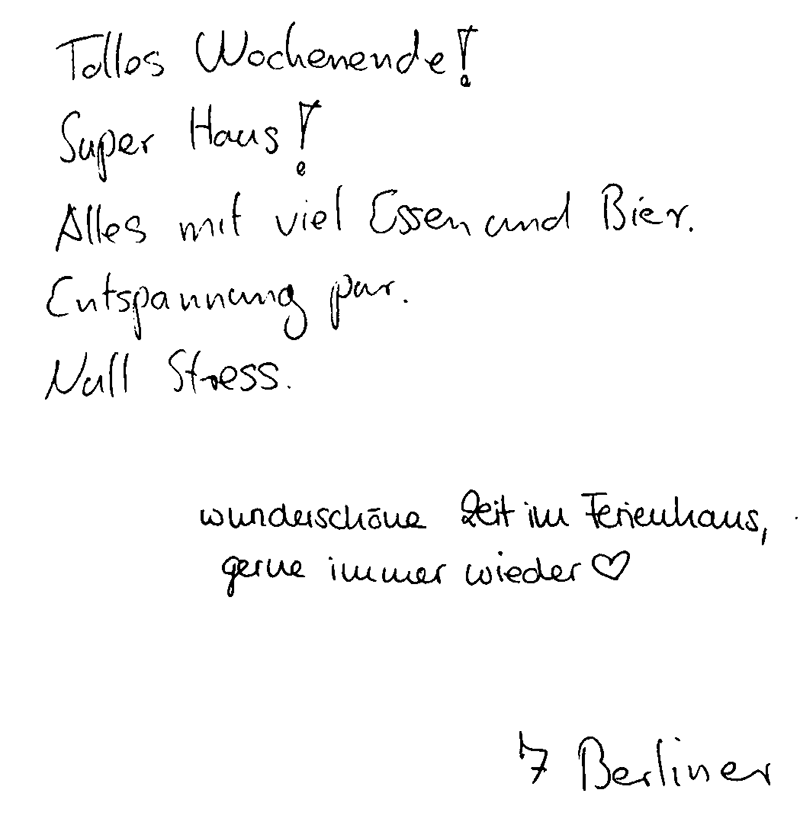 Tolles Wochenende!
Super Haus!
Alles mit viel Essen und Bier.
Entspannung pur.
Null Stress.
wunderschöne Zeit im Ferienhaus,
gerne immer wieder ♡
7 Berliner